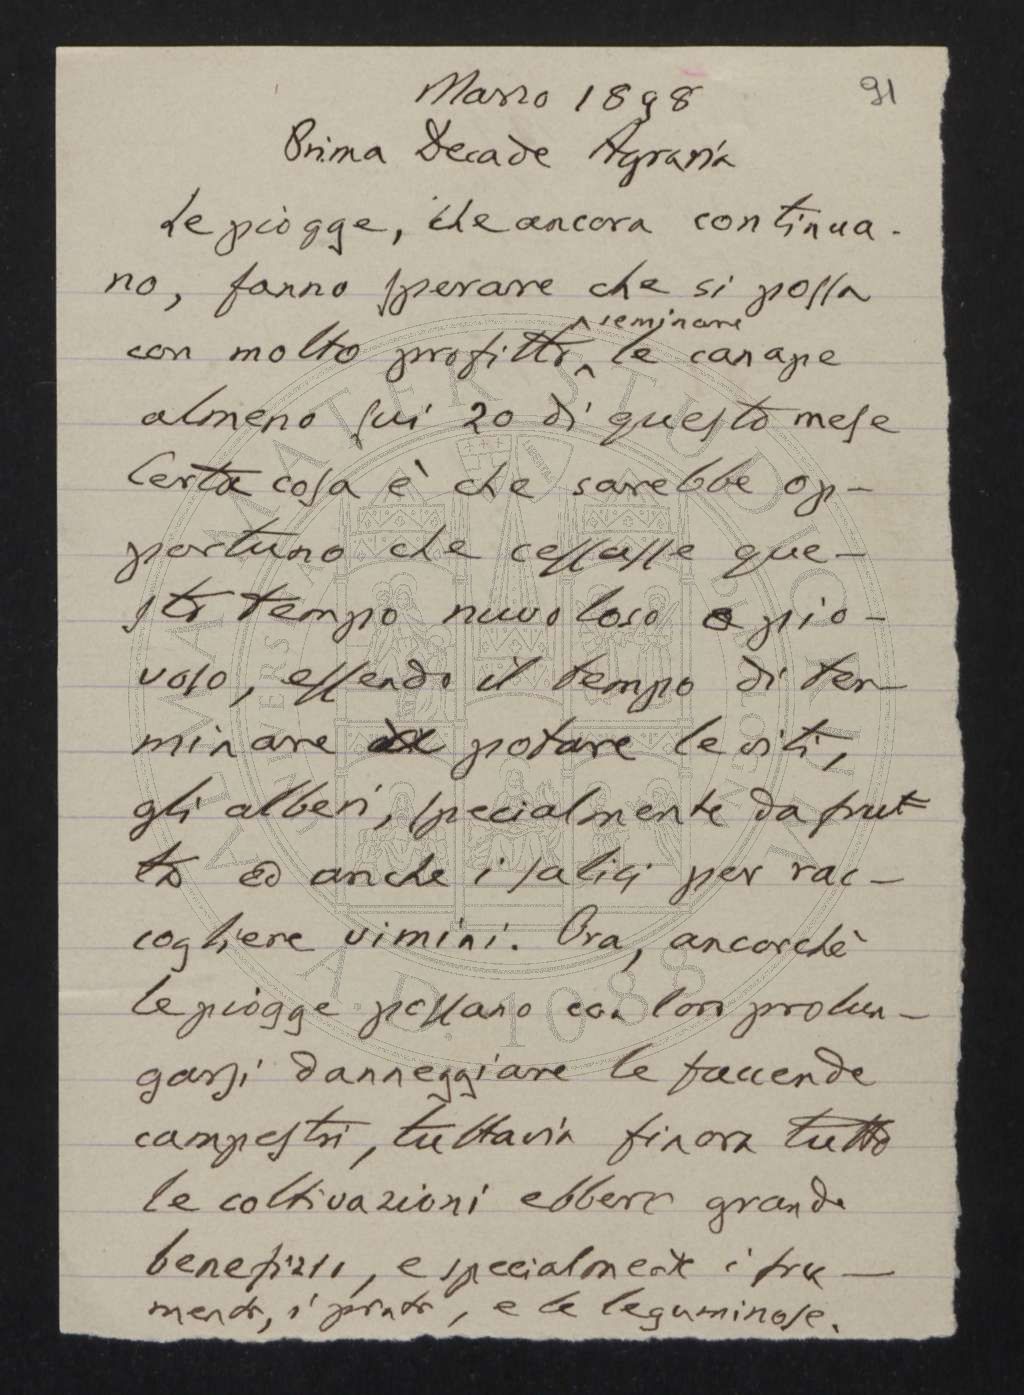 91
Marzo 1898
Prima Decade Agraria
Le piogge, che ancora continua-
no, fanno sperare che si possa
seminare
con molto profitto le canape
almeno sui 20 di questo mese
Certa cosa è che sarebbe op-
portuno che cessasse que-
sto tempo nuvoloso e pio-
voso, essendo il tempo di ter-
minare potare le viti,
gli alberi, specialmente da frut-
to ed anche i salici per rac-
cogliere vimini. Ora, ancorchè
le piogge possano con loro prolun-
garsi danneggiare le faccende
campestri, tuttavia finora tutto
le coltivazioni ebbero grande
benefizio, e specialmente i fru-
mento, i prato, e le leguminose.
ALMA MATER STUDIORUM
A.D. 1088